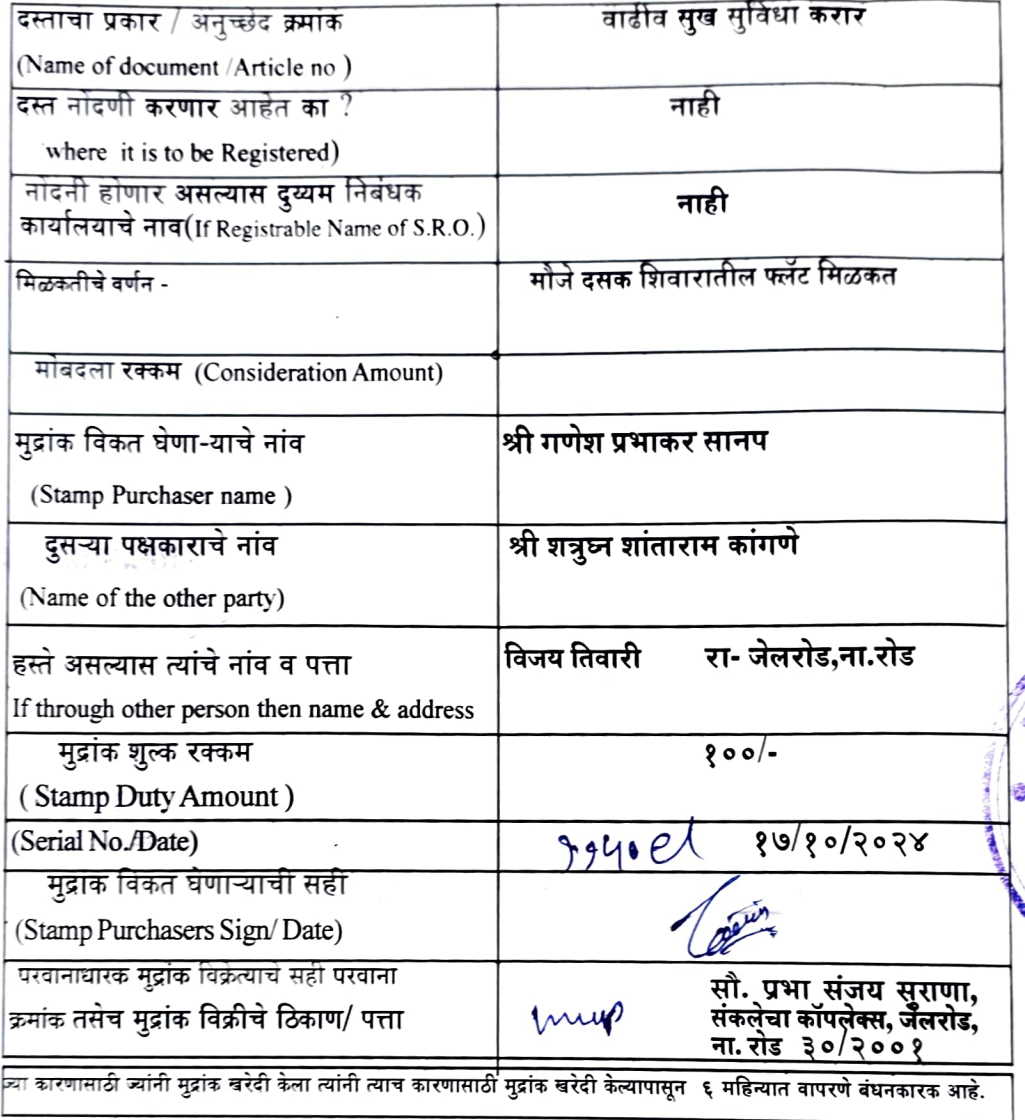 दस्ताचा प्रकार / अनुच्छेद क्रमांक
वाढीव सुख सुविधा करार
(Name of document /Article no )
दस्त नोदणी करणार आहेत का ?
नाही
where it is to be Registered)
नोदनी होणार असल्यास दुय्यम निबंधक
कार्यालयाचे नाव(If Registrable Name of S.R.O.)
नाही
मिळकतीचे वर्णन -
मौजे दसक शिवारातील फ्लॅट मिळकत
मोबदला रक्कम (Consideration Amount)
मुद्रांक विकत घेणा-याचे नांव
श्री गणेश प्रभाकर सानप
(Stamp Purchaser name )
दुसऱ्या पक्षकाराचे नांव
श्री शत्रुघ्न शांताराम कांगणे
(Name of the other party)
हस्ते असल्यास त्यांचे नांव व पत्ता
विजय तिवारी रा- जेलरोड,ना.रोड
If through other person then name & address
मुद्रांक शुल्क रक्कम
१००/-
( Stamp Duty Amount )
(Serial No./Date)
१७/१०/२०२४
मुद्राक विकत घेणाऱ्याची सही
(Stamp Purchasers Sign/ Date)
परवानाधारक मुद्रांक विक्रेत्याचे सही परवाना
क्रमांक तसेच मुद्रांक विक्रीचे ठिकाण/ पत्ता
सौ. प्रभा संजय सुराणा,
संकलेचा कॉपलेक्स, जेलरोड,
ना. रोड ३०/२००१
ज्या कारणासाठी ज्यांनी मुद्रांक खरेदी केला त्यांनी त्याच कारणासाठी मुद्रांक खरेदी केल्यापासून ६ महिन्यात वापरणे बंधनकारक आहे.